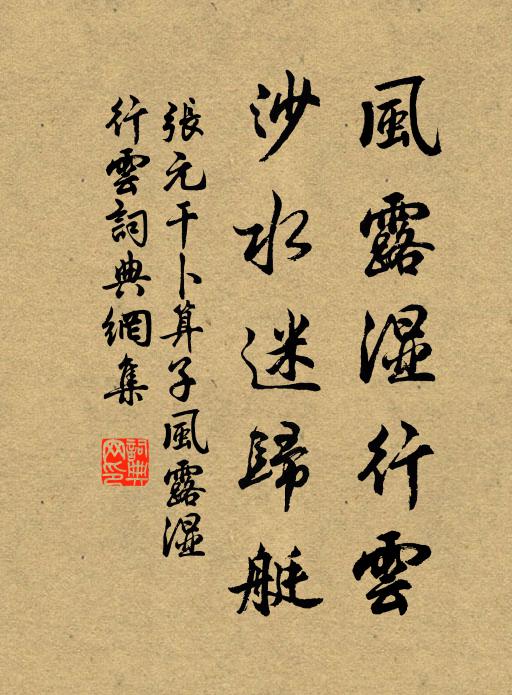 風露濕行雲
沙水迷歸艇
張元干卜算子風露濕
行雲詞典網集
詞典
网印